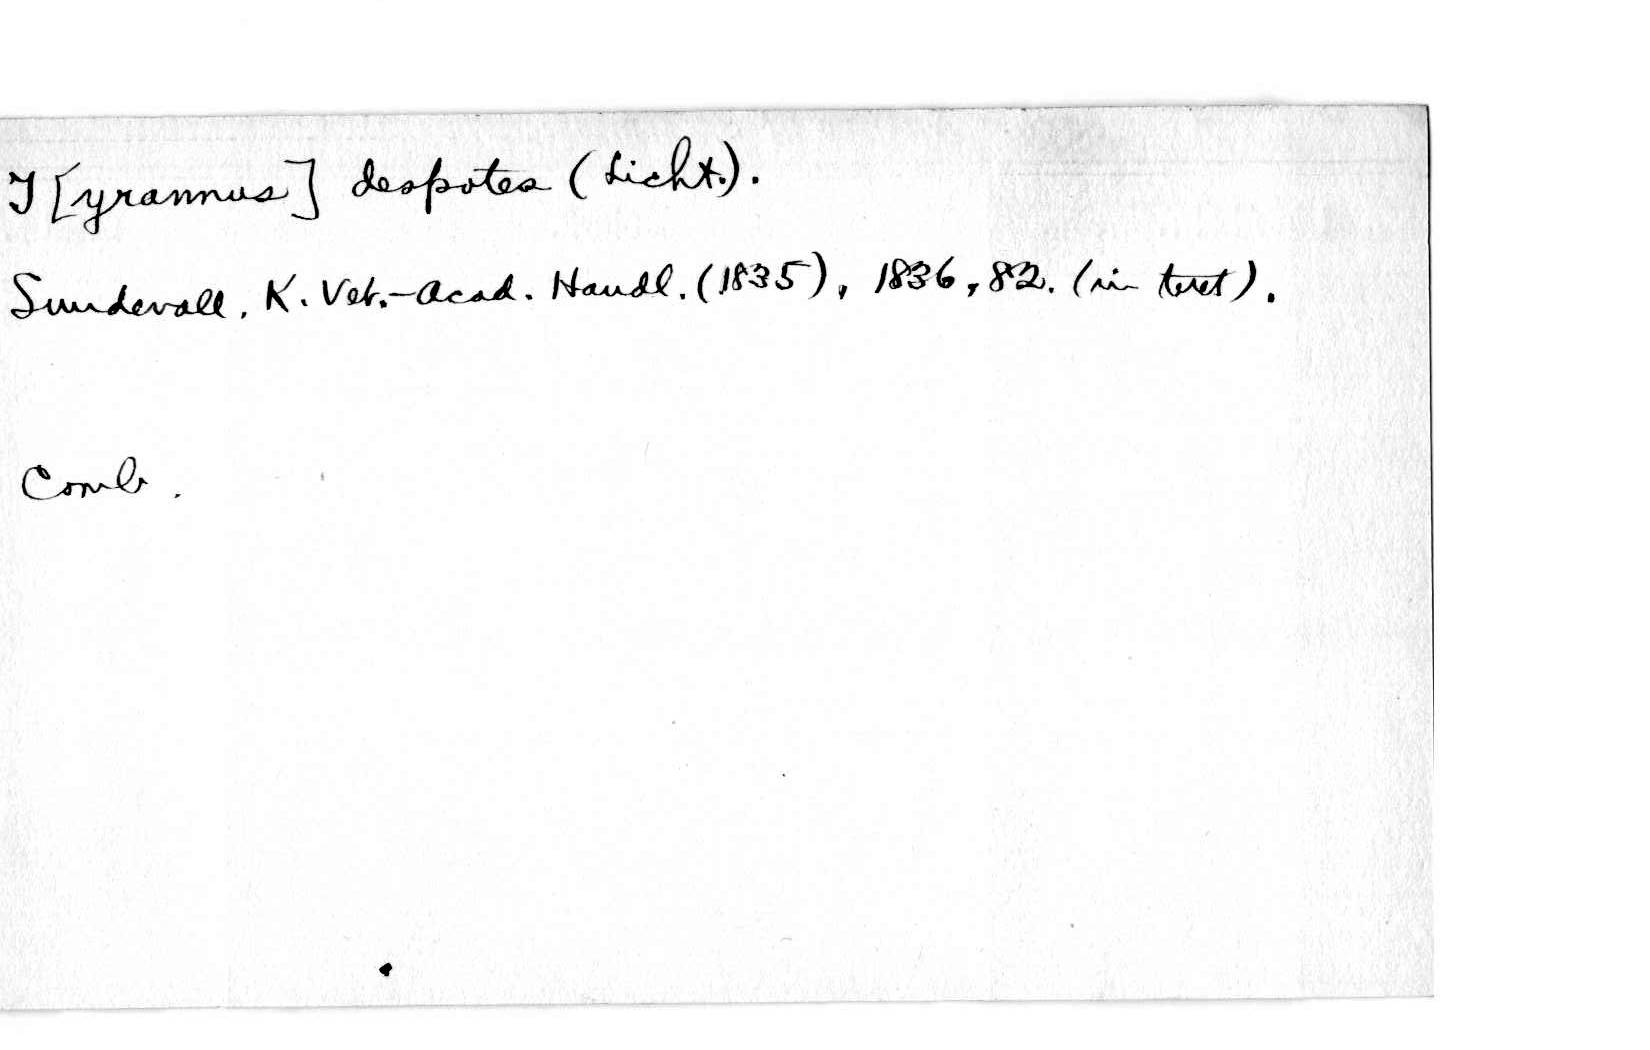 T[yrannus] despotes (Licht.).
Sundevall, K. Vet.-Acad. Handl. (1835), 1836, 82. (in text).
Comb.